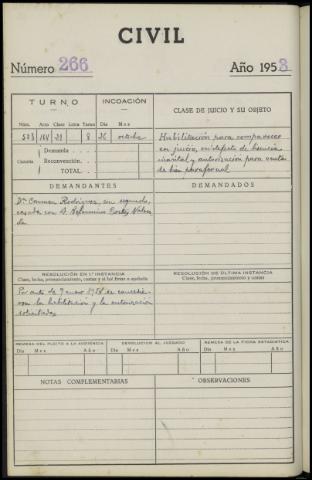 CIVIL
Número 266 Año 1953
TURNO INCOACIÓN CLASE DE JUICIO Y SU OBJETO
Núm. Art. Clase Letra Tarea Día Mes
8 26 octubre
Habilitación para comparecer
en juicio, en defecto de licencia
marital y autorización para venta
de bien parafernal
Cuantía Demanda
Reconvención
TOTAL
DEMANDANTES DEMANDADOS
Dª Carmen Rodríguez
casada con D.
RESOLUCIÓN EN 1ª INSTANCIA
Clase, fecha, pronunciamiento, costas y si fué firme o apelada
RESOLUCIÓN DE ÚLTIMA INSTANCIA
Clase, fecha, pronunciamiento y costas
Por auto de 7 enero se concedie
ron la habilitación y la autorización
solicitadas
REMESA DEL PLEITO A LA AUDIENCIA DEVOLUCIÓN AL JUZGADO REMESA DE LA FICHA ESTADÍSTICA
Día Mes Año Día Mes Año Día Mes Año
NOTAS COMPLEMENTARIAS OBSERVACIONES